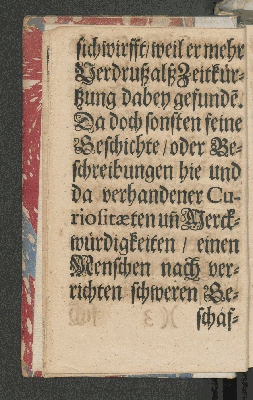 sich wirfft / weil er mehr
Verdruß alß Zeitkür-
tzung dabey gefundē.
Da doch sonsten seine
Geschichte / oder Be-
schreibungen hie und
da verhandener Cu-
riositæten uñ Merck-
würdigkeiten / einen
Menschen nach ver-
richten schweren Ge-
schäf-